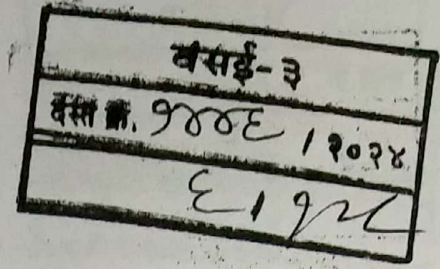 वसई-३
दस्त क्र. १४४६ / २०२४
६ / १८